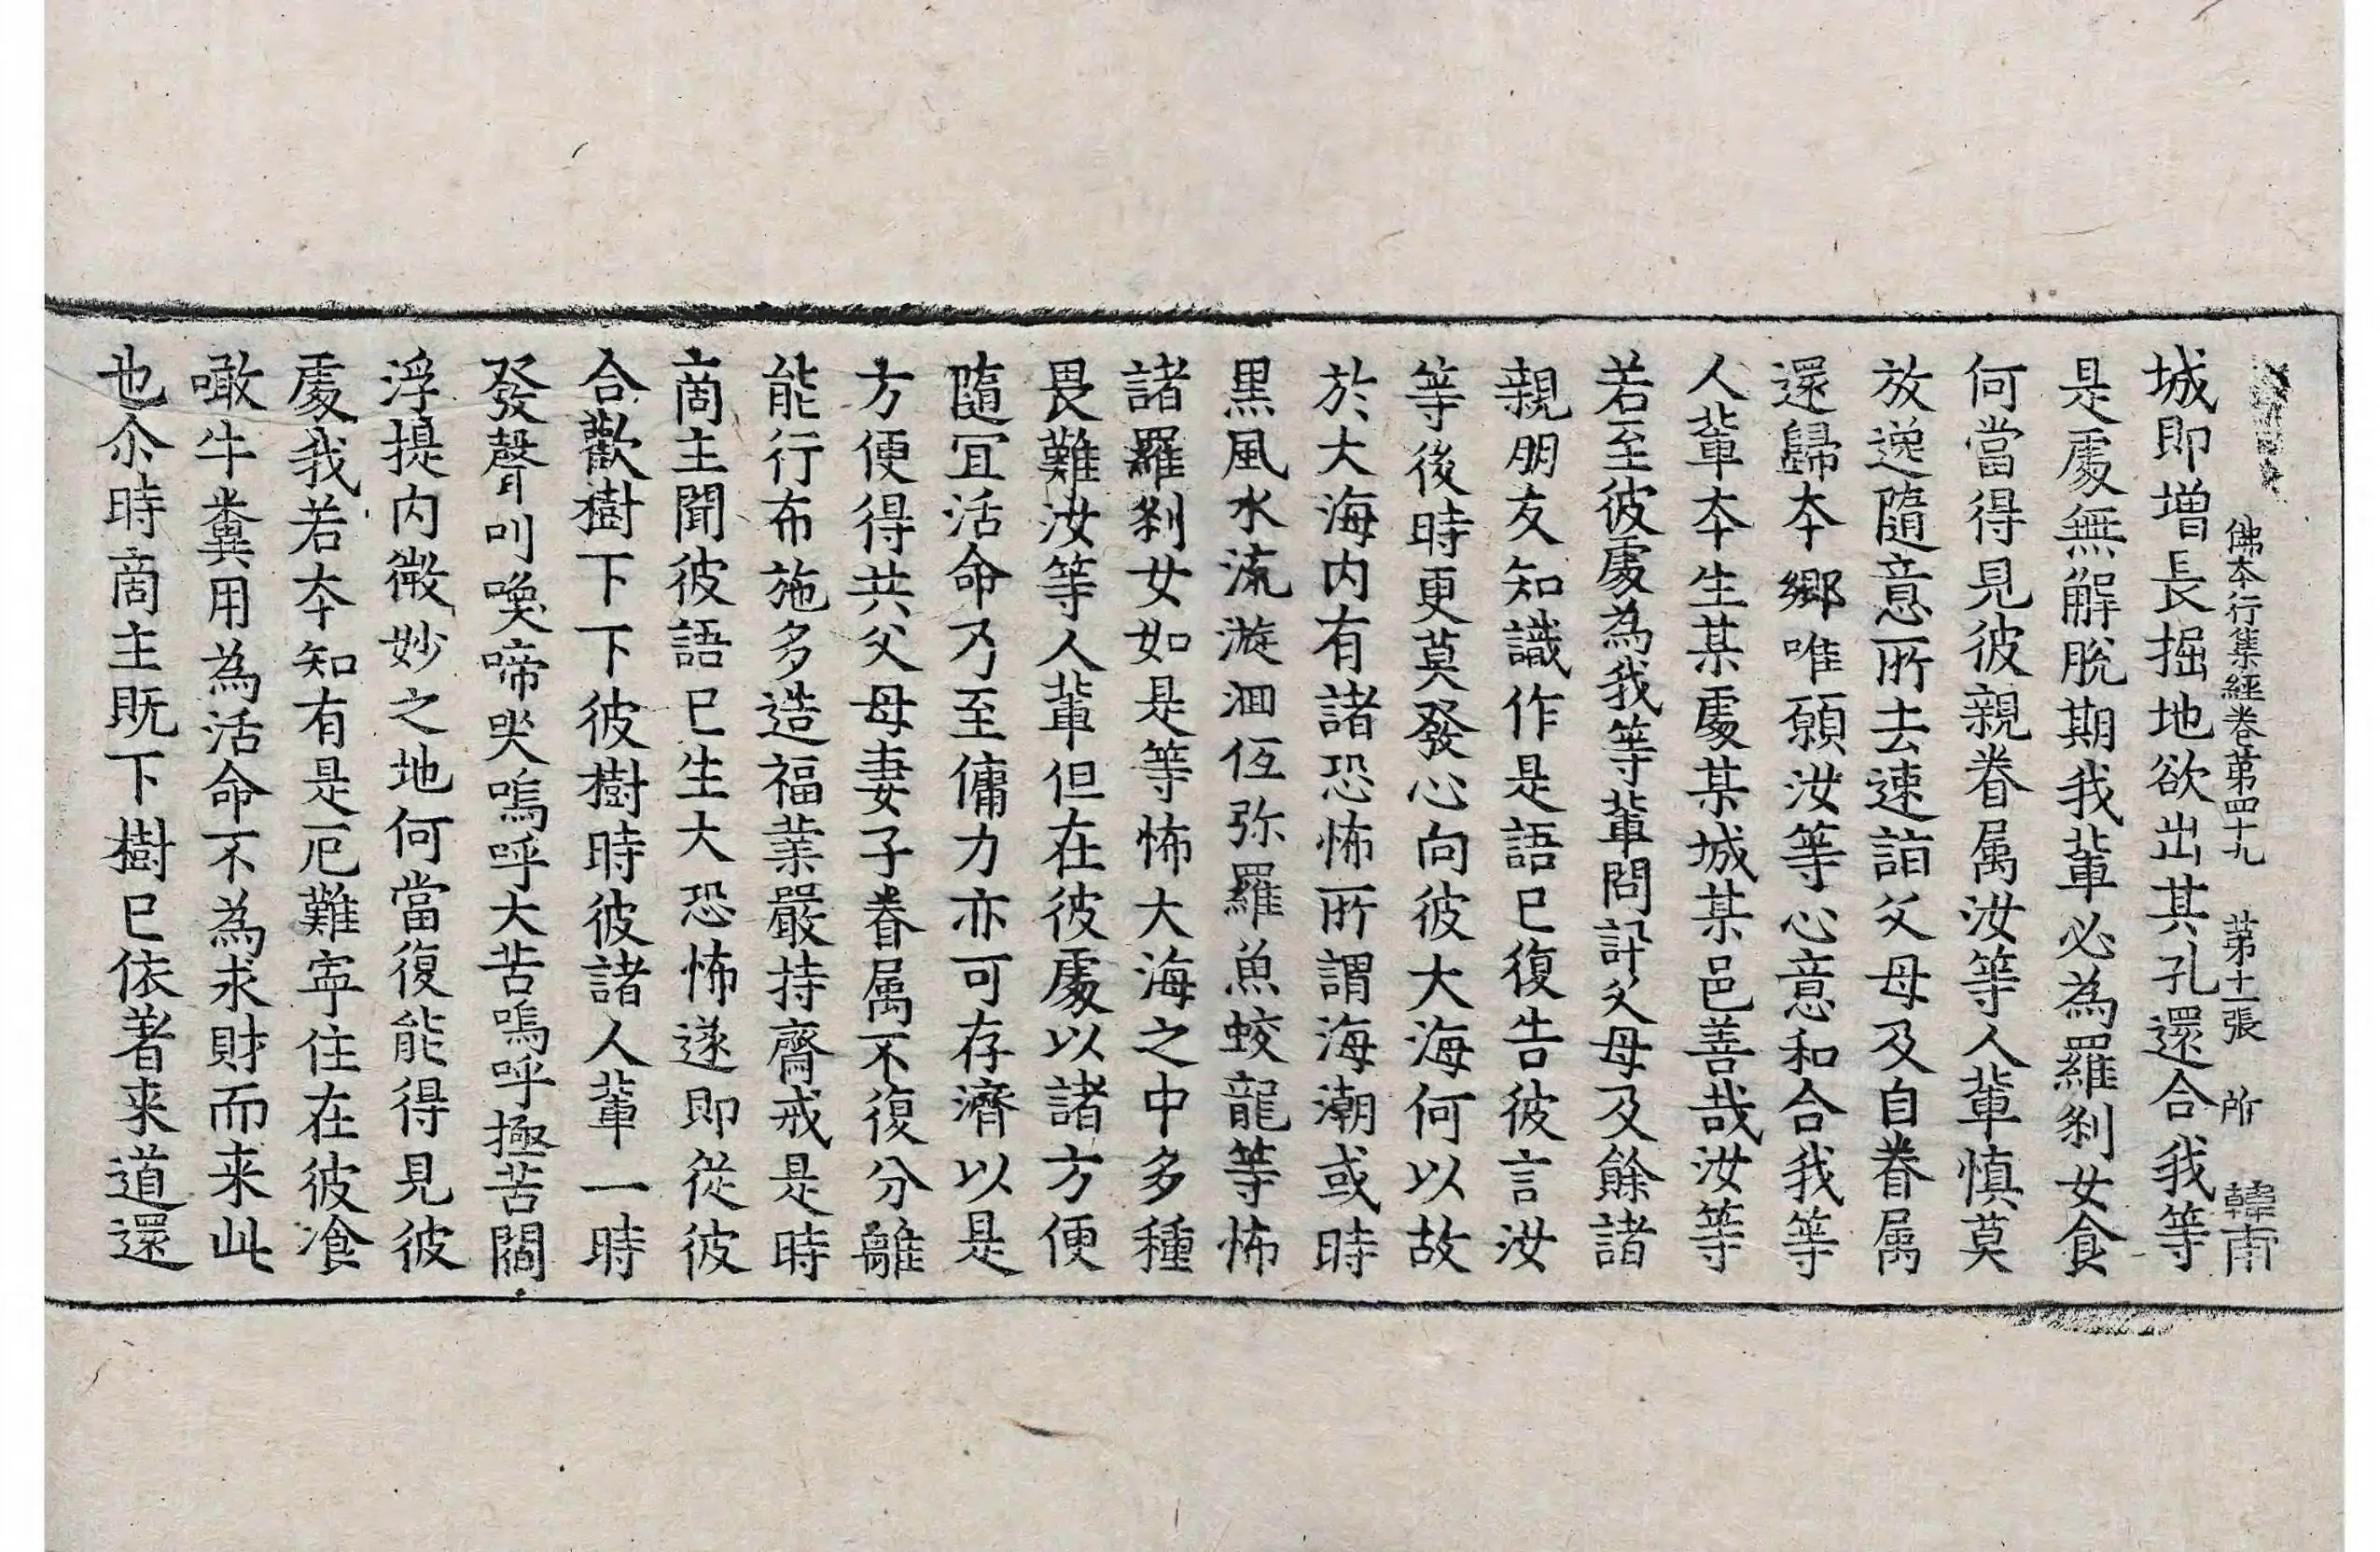 佛本行集經卷第四十九　第十一張　所　韓甫
城即增長掘地欲出其孔還合我等
是處無解脫期我輩必為羅剎女食
何當得見彼親眷属汝等人輩慎莫
放逸隨意所去速詣父母及自眷属
還歸本鄉唯願汝等心意和合我等
人輩本生某處某城某邑善哉汝等
若至彼處為我等輩問訊父母及餘諸
親朋友知識作是語已復告彼言汝
等後時更莫發心向彼大海何以故
於大海内有諸恐怖所謂海潮或時
黑風水流漩洄伍弥羅魚蛟龍等怖
諸羅剎女如是等怖大海之中多種
畏難汝等人輩但在彼處以諸方便
隨冝活命乃至傭力亦可存濟以是
方便得共父母妻子眷属不復分離
能行布施多造福業嚴持齋戒是時
商主聞彼語已生大恐怖遂即從彼
合歡樹下下彼樹時彼諸人輩一時
發聲叫喚啼哭嗚呼大苦嗚呼極苦閻
浮提内微妙之地何當復能得見彼
處我若本知有是厄難寧住在彼飡
噉牛糞用為活命不為求財而来此
也尒時商主既下樹已依著来道還